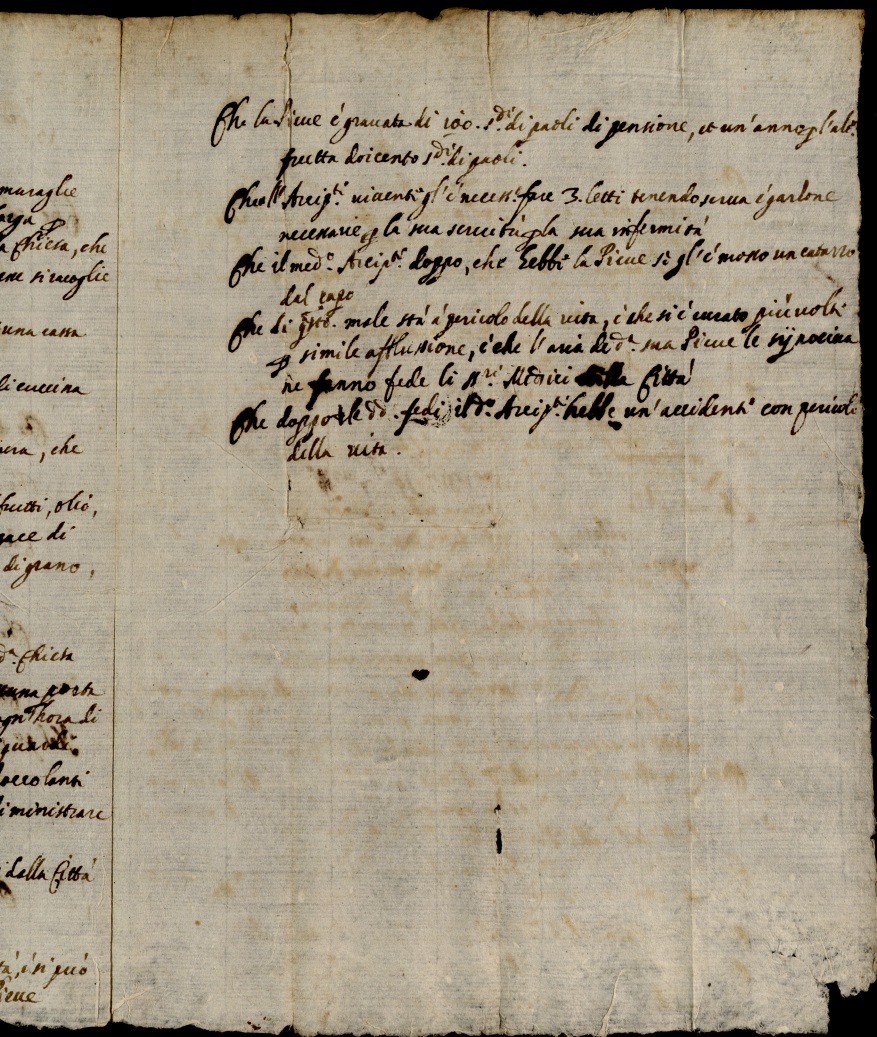 muraglie
larga
la Chiesa, che
ene si racoglie
una cassa
di cuccina
era, che
frutti, olio,
pace di
di grano,
d.ª Chiesa
una porta
ogn'hora di
occolanti
iministrare
dalla Città
tà, è si può
Pieve
Che la Pieue é grauata di 100. s.di di paoli di pensione, et un'anno p l'alt.º
frutta doicento s.di di paoli.
Che all'Arcip.te uiuente gl'é necess.º fare 3. letti tenendo serua é garzone
necesarie p la sua seruitù p la sua infermità
Che il med.º Arcip.te doppo, che hebbe la Pieue se gl'é mosso un catarro
dal capo
Che di q.sto male stá á pericolo della uita, é che si é curato piú uolte
p simile afflussione, é che l'aria di d.ª sua Pieue le sij nociua
ne fanno fede li ss.ri Medici della Città
Che doppo le dd. fedi il d.º Arcip.te hebbe un'accidente con pericolo
della uita.